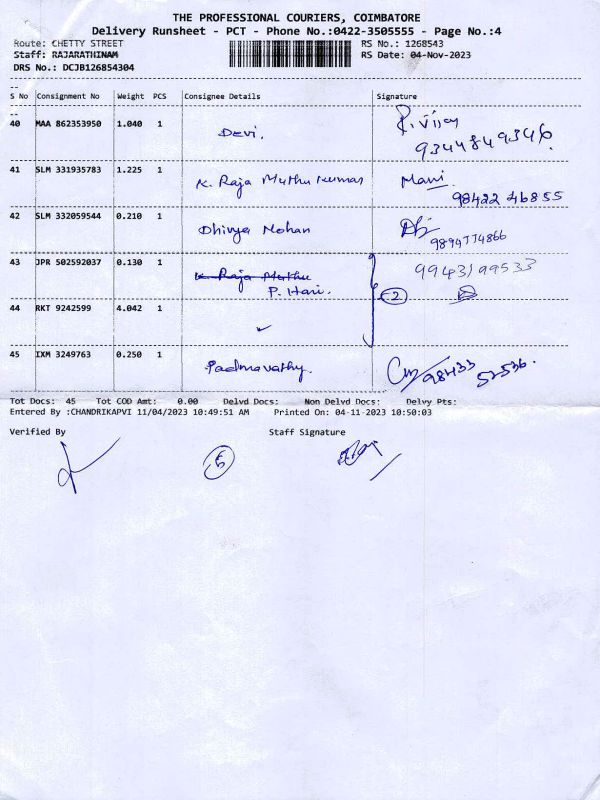 THE PROFESSIONAL COURIERS, COIMBATORE
Delivery Runsheet - PCT - Phone No.:0422-3505555 - Page No.:4
Route: CHETTY STREET RS No.: 1268543
Staff: RAJARATHINAM RS Date: 04-Nov-2023
DRS No.: DCJB126854304
S No Consignment No Weight PCS Consignee Details Signature
40 MAA 862353950 1.040 1 Devi. R. Vijay
9344849346.
41 SLM 331935783 1.225 1 K. Raja Muthu Kumar Mani
98422 46855
42 SLM 332059544 0.210 1 Dhivya Mohan
9894774866
43 JPR 502592037 0.130 1 K. Raja Muthu 9943199533
P. Hari.
2
44 RKT 9242599 4.042 1 ✓
45 IXM 3249763 0.250 1 Padmavathy. 98433
52536.
Tot Docs: 45 Tot COD Amt: 0.00 Delvd Docs: Non Delvd Docs: Delvy Pts:
Entered By :CHANDRIKAPVI 11/04/2023 10:49:51 AM Printed On: 04-11-2023 10:50:03
Verified By Staff Signature